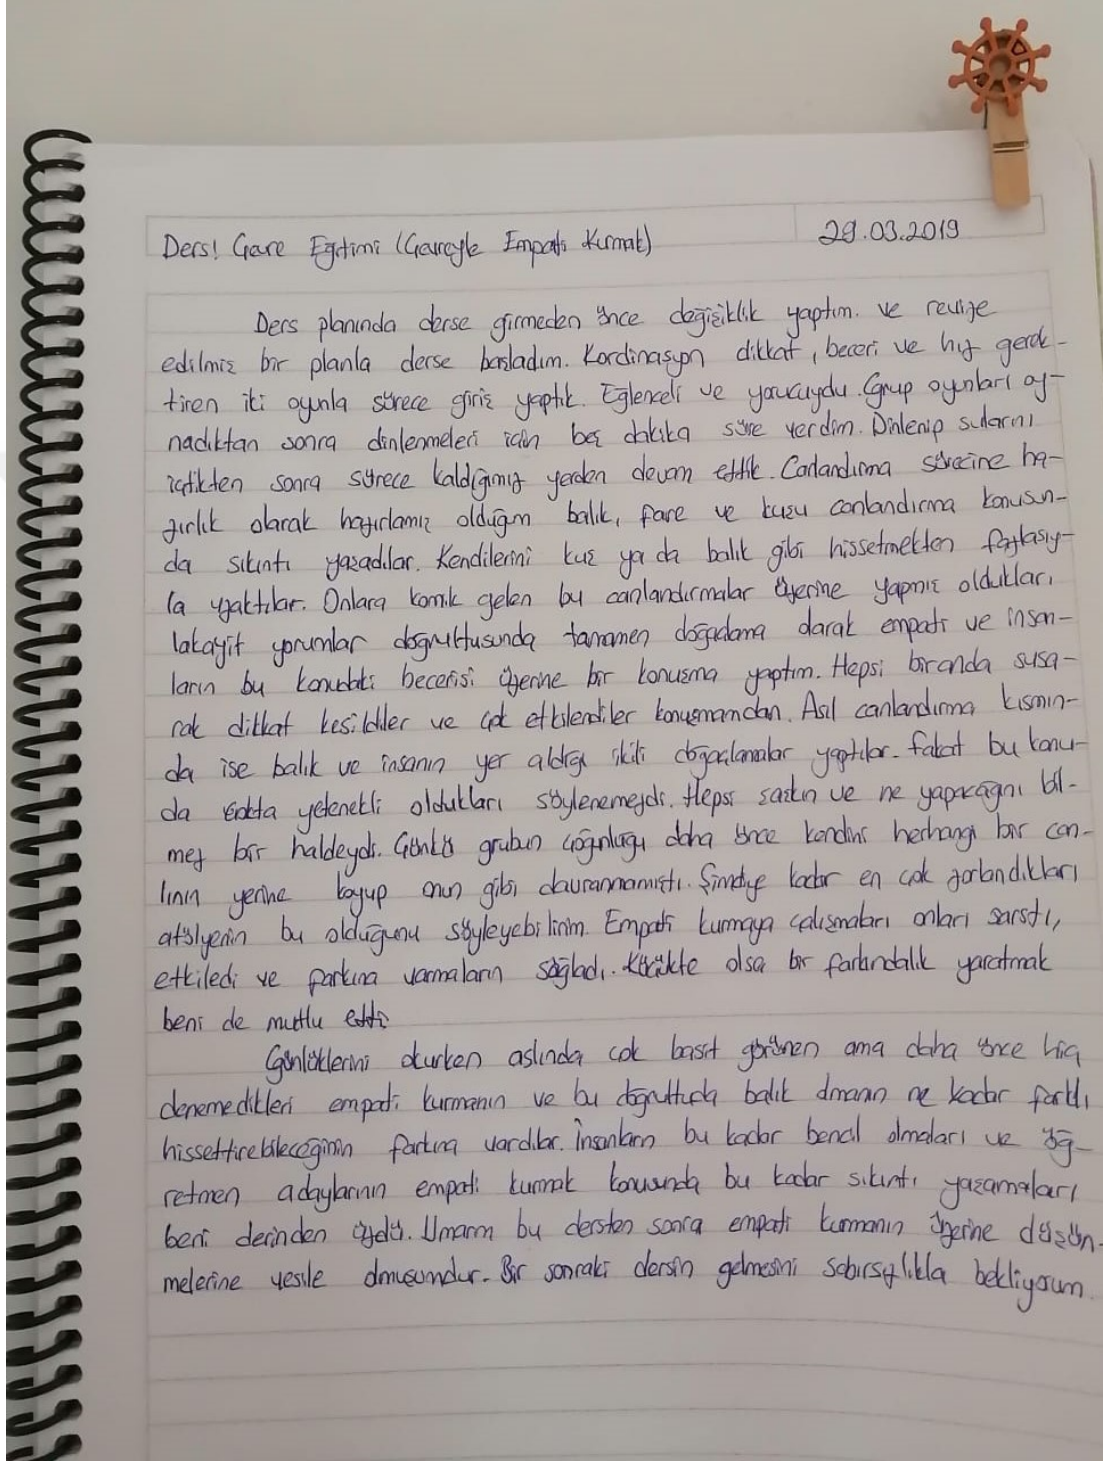 Ders! Çevre Eğitimi (Çevreyle Empati Kurmak) 29.03.2019
Ders planında derse girmeden önce değişiklik yaptım. ve revize
edilmiş bir planla derse başladım. Kordinasyon dikkat, beceri ve hız gerek-
tiren iki oyunla sürece giriş yaptık. Eğlenceli ve yorucuydu. Grup oyunları oy-
nadıktan sonra dinlenmeleri için beş dakika süre verdim. Dinlenip sularını
içtikten sonra sürece kaldığımız yerden devam ettik. Canlandırma sürecine ha-
zırlık olarak hazırlamış olduğum balık, fare ve kuzu canlandırma konusun-
da sıkıntı yaşadılar. Kendilerini kuş ya da balık gibi hissetmekten fazlasıy-
la uzaktılar. Onlara komik gelen bu canlandırmalar üzerine yapmış oldukları
lakayit yorumlar doğrultusunda tamamen doğaçlama olarak empati ve insan-
ların bu konudaki becerisi üzerine bir konuşma yaptım. Hepsi bir anda susa-
rak dikkat kesildiler ve çok etkilendiler konuşmamdan. Asıl canlandırma kısmın-
da ise balık ve insanın yer aldığı ikili doğaçlamalar yaptılar. Fakat bu konu-
da yetenekli oldukları söylenemezdi. Hepsi şaşkın ve ne yapacağını bil-
mez bir haldeydi. Çünkü grubun çoğunluğu daha önce kendini herhangi bir can-
lının yerine koyup onun gibi davranmamıştı. Şimdiye kadar en çok zorlandıkları
atölyenin bu olduğunu söyleyebilirim. Empati kurmaya çalışmaları onları sarstı,
etkiledi ve farkına varmaların sağladı. Küçükte olsa bir farkındalık yaratmak
beni de mutlu etti.
Günlüklerini okurken aslında çok basit görünen ama daha önce hiç
denemedikleri empati kurmanın ve bu doğrultuda balık olmanın ne kadar farklı
hissettirebileceğinin farkına vardılar. İnsanların bu kadar bencil olmaları ve öğ-
retmen adaylarının empati kurmak konusunda bu kadar sıkıntı yaşamaları
beni derinden üzdü. Umarım bu dersten sonra empati kurmanın üzerine düşün-
melerine vesile olmuşumdur. Bir sonraki dersin gelmesini sabırsızlıkla bekliyorum.